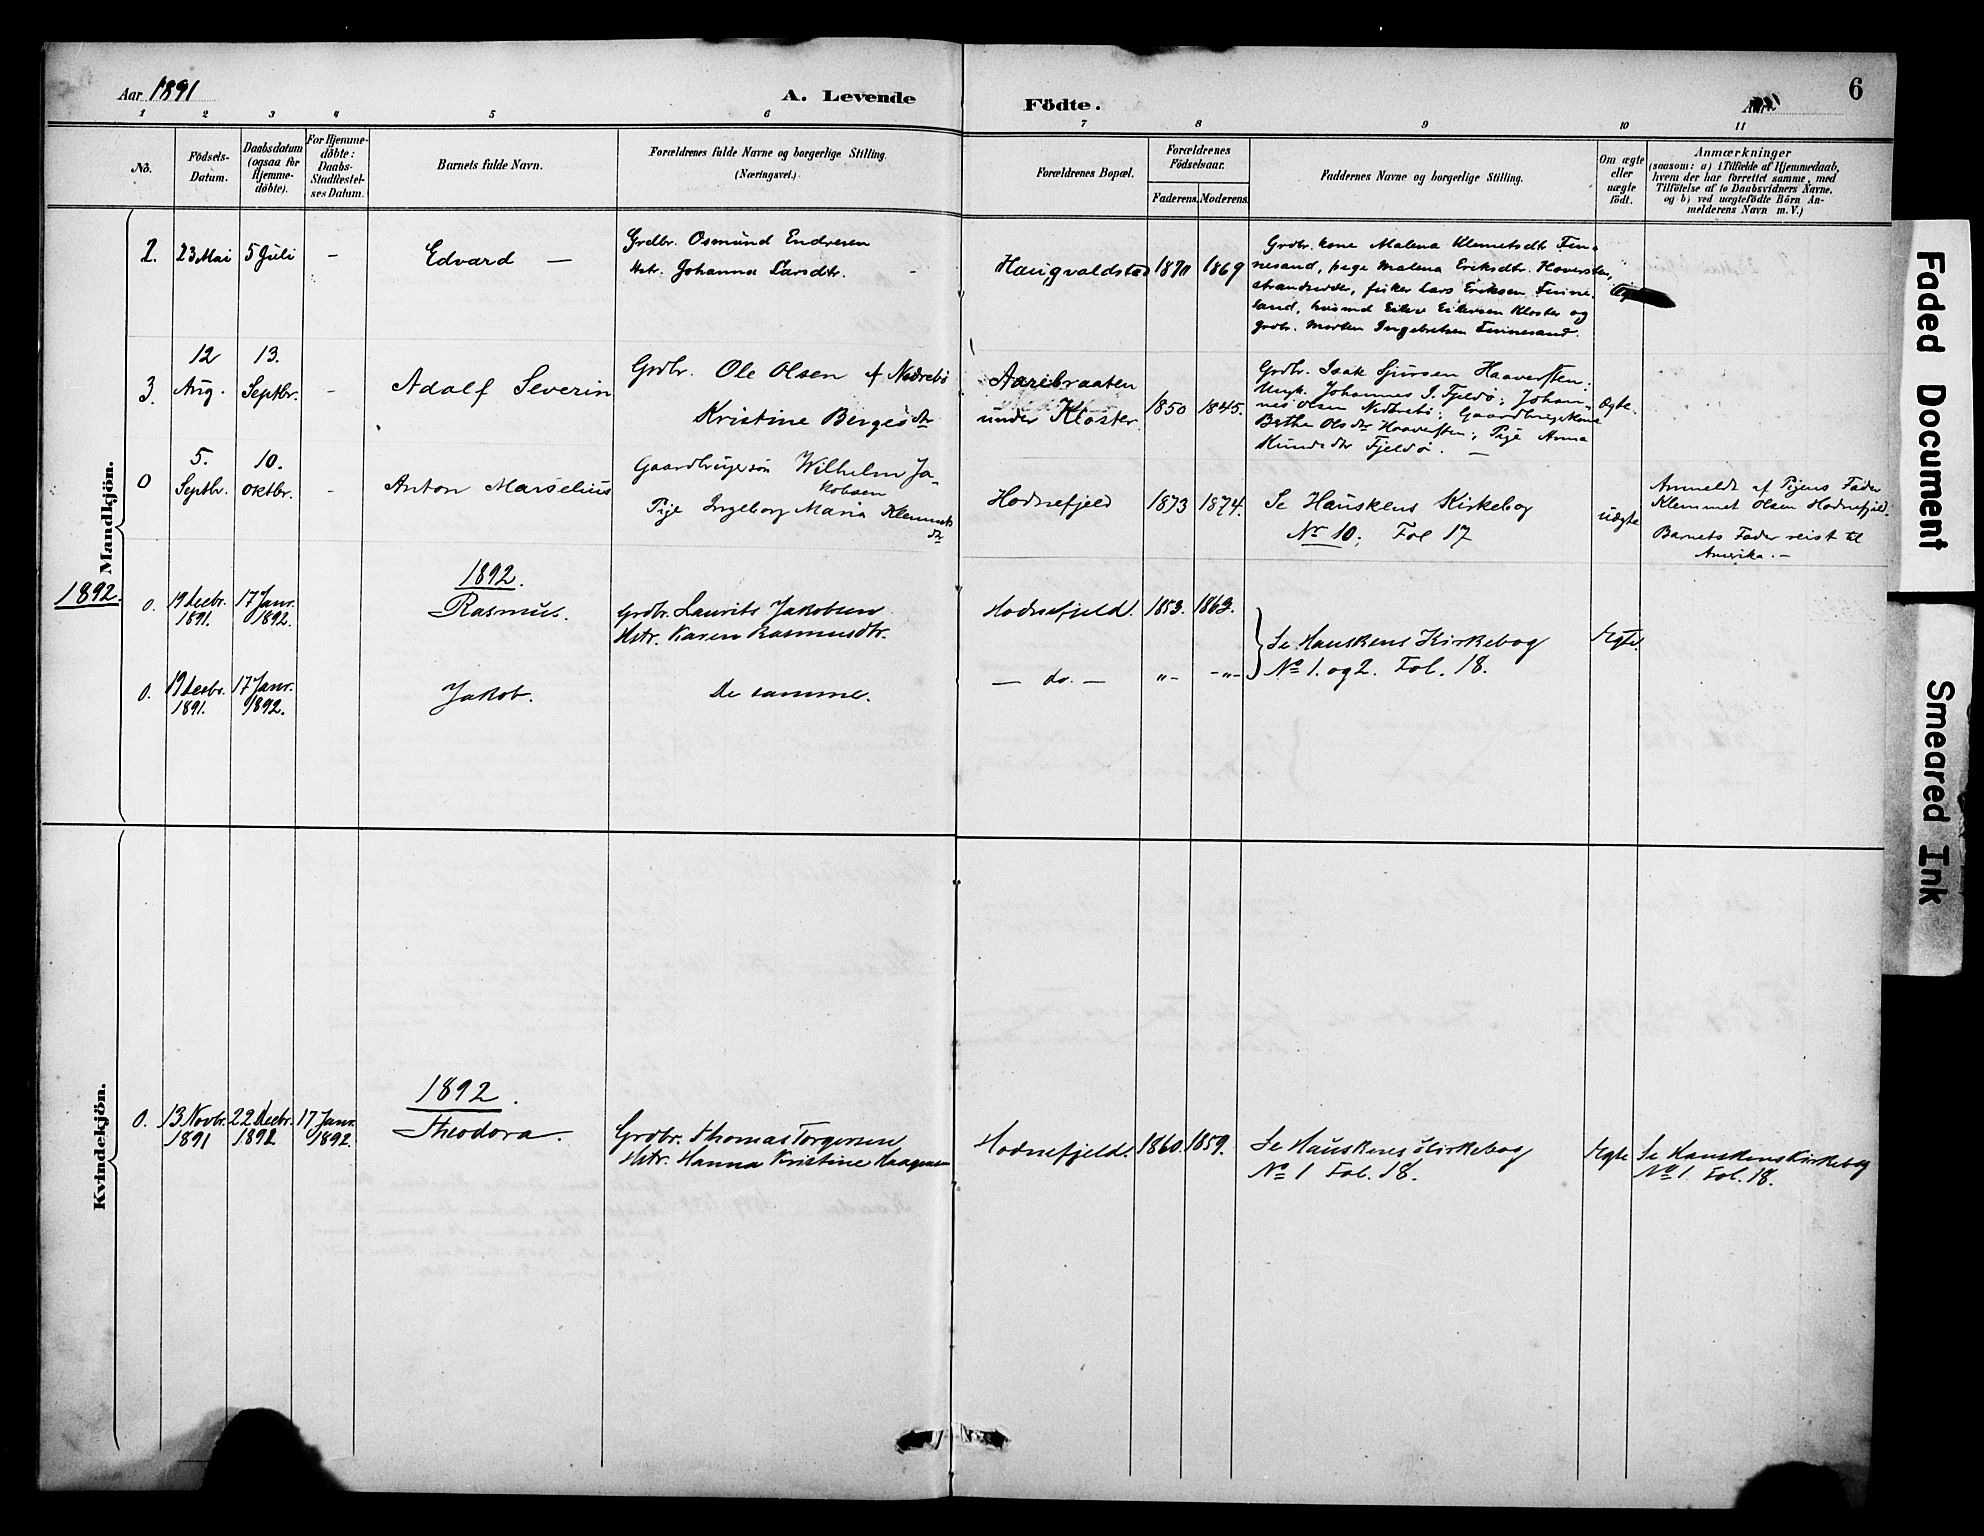 Aar 1891
A. Levende
Födte.
6
1 2 3 4 5 6 7 8 9 10 11
No.
Födsels-
Datum.
Daabsdatum
(ogsaa for
Hjemme-
döbte).
For Hjemme-
döbte:
Daabs-
Stadfæstel-
ses Datum.
Barnets fulde Navn.
Forældrenes fulde Navne og borgerlige Stilling.
(Næringsvei.)
Forældrenes Bopæl.
Forældrenes
Födselsaar.
Faderens. Moderens.
Faddernes Navne og borgerlige Stilling.
Om ægte
eller
uægte
födt.
Anmærkninger
(saasom: a) i Tilfælde af Hjemmedaab,
hvem der har forrettet samme, med
Tilföielse af to Daabsvidners Navne.
og b) ved uægtefödte Börn An-
melderens Navn m. V.)
Mandkjön.
2. 23 Mai 5 Juli – Edvard –
Grdbr. Osmund Endresen
Hstr. Johanna Larsdtr.
Haugvaldstad 1870 1869
Grdbr. kone Malena Klemetsdtr Fin-
nesand, pige Malena Eriksdtr. Haversten,
strandsidder, fisker Lars Eriksen Finne-
sand, husmd Eilert Eilertsen Kloster og
grdbr. Morten Ingebretsen Finnesand.
3. 12
Aug.
13.
Septbr.
Adolf Severin
Grdbr. Ole Olsen Nedrebö
Kristine Berges dtr
Aarebraaten
under Kloster. 1850 1845.
Grdbr. Isak Sjursen Haaversten;
Ungk. Johannes I. Fjeldö; Johan-
nes Olsen Nedrebö; Gaardbrugs Kone
Berthe Olsdtr Haaversten; Pige Anna
Knudsdtr Fjeldö. –
Ægte.
0 5.
Septbr.
10.
Oktbr. –
Anton Marselius
Gaardbrugersön Wilhelm Ja-
kobsen
Pige Ingeborg Maria Klemmets
dtr
Hodnefjeld 1873 1874.
Se Hauskens Kirkebog
No 10; Fol 17
uægte
Anmeldt af Pigens Fader
Klemmet Olsen Hodnefjeld.
Barnets Fader reist til
Amerika. –
1892.
1892.
0. 19 decbr.
1891.
17 Janr.
1892.
Rasmus.
Grdbr. Laurits Jakobsen
Hstr. Karen Rasmusdtr.
Hodnefjeld. 1853. 1863.
Se Hauskens Kirkebog
No 1. og 2. Fol. 18.
Ægte.
0. 19 decbr.
1891.
17 Janr.
1892.
Jakob.
De samme.
– do. – „ – – „ –
Kvindekjön.
1892.
0. 13 Novbr.
1891
22 Decbr.
1892
17 Janr.
1892.
Theodora.
Grdbr. Thomas Torgersen
Hstr. Hanna Kristine Haagensen
Hodnefjeld. 1860. 1859.
Se Hauskens Kirkebog
No 1 Fol. 18.
Ægte
Se Hauskens Kirkebog
No 1. Fol. 18.
Faded Document
Smeared Ink